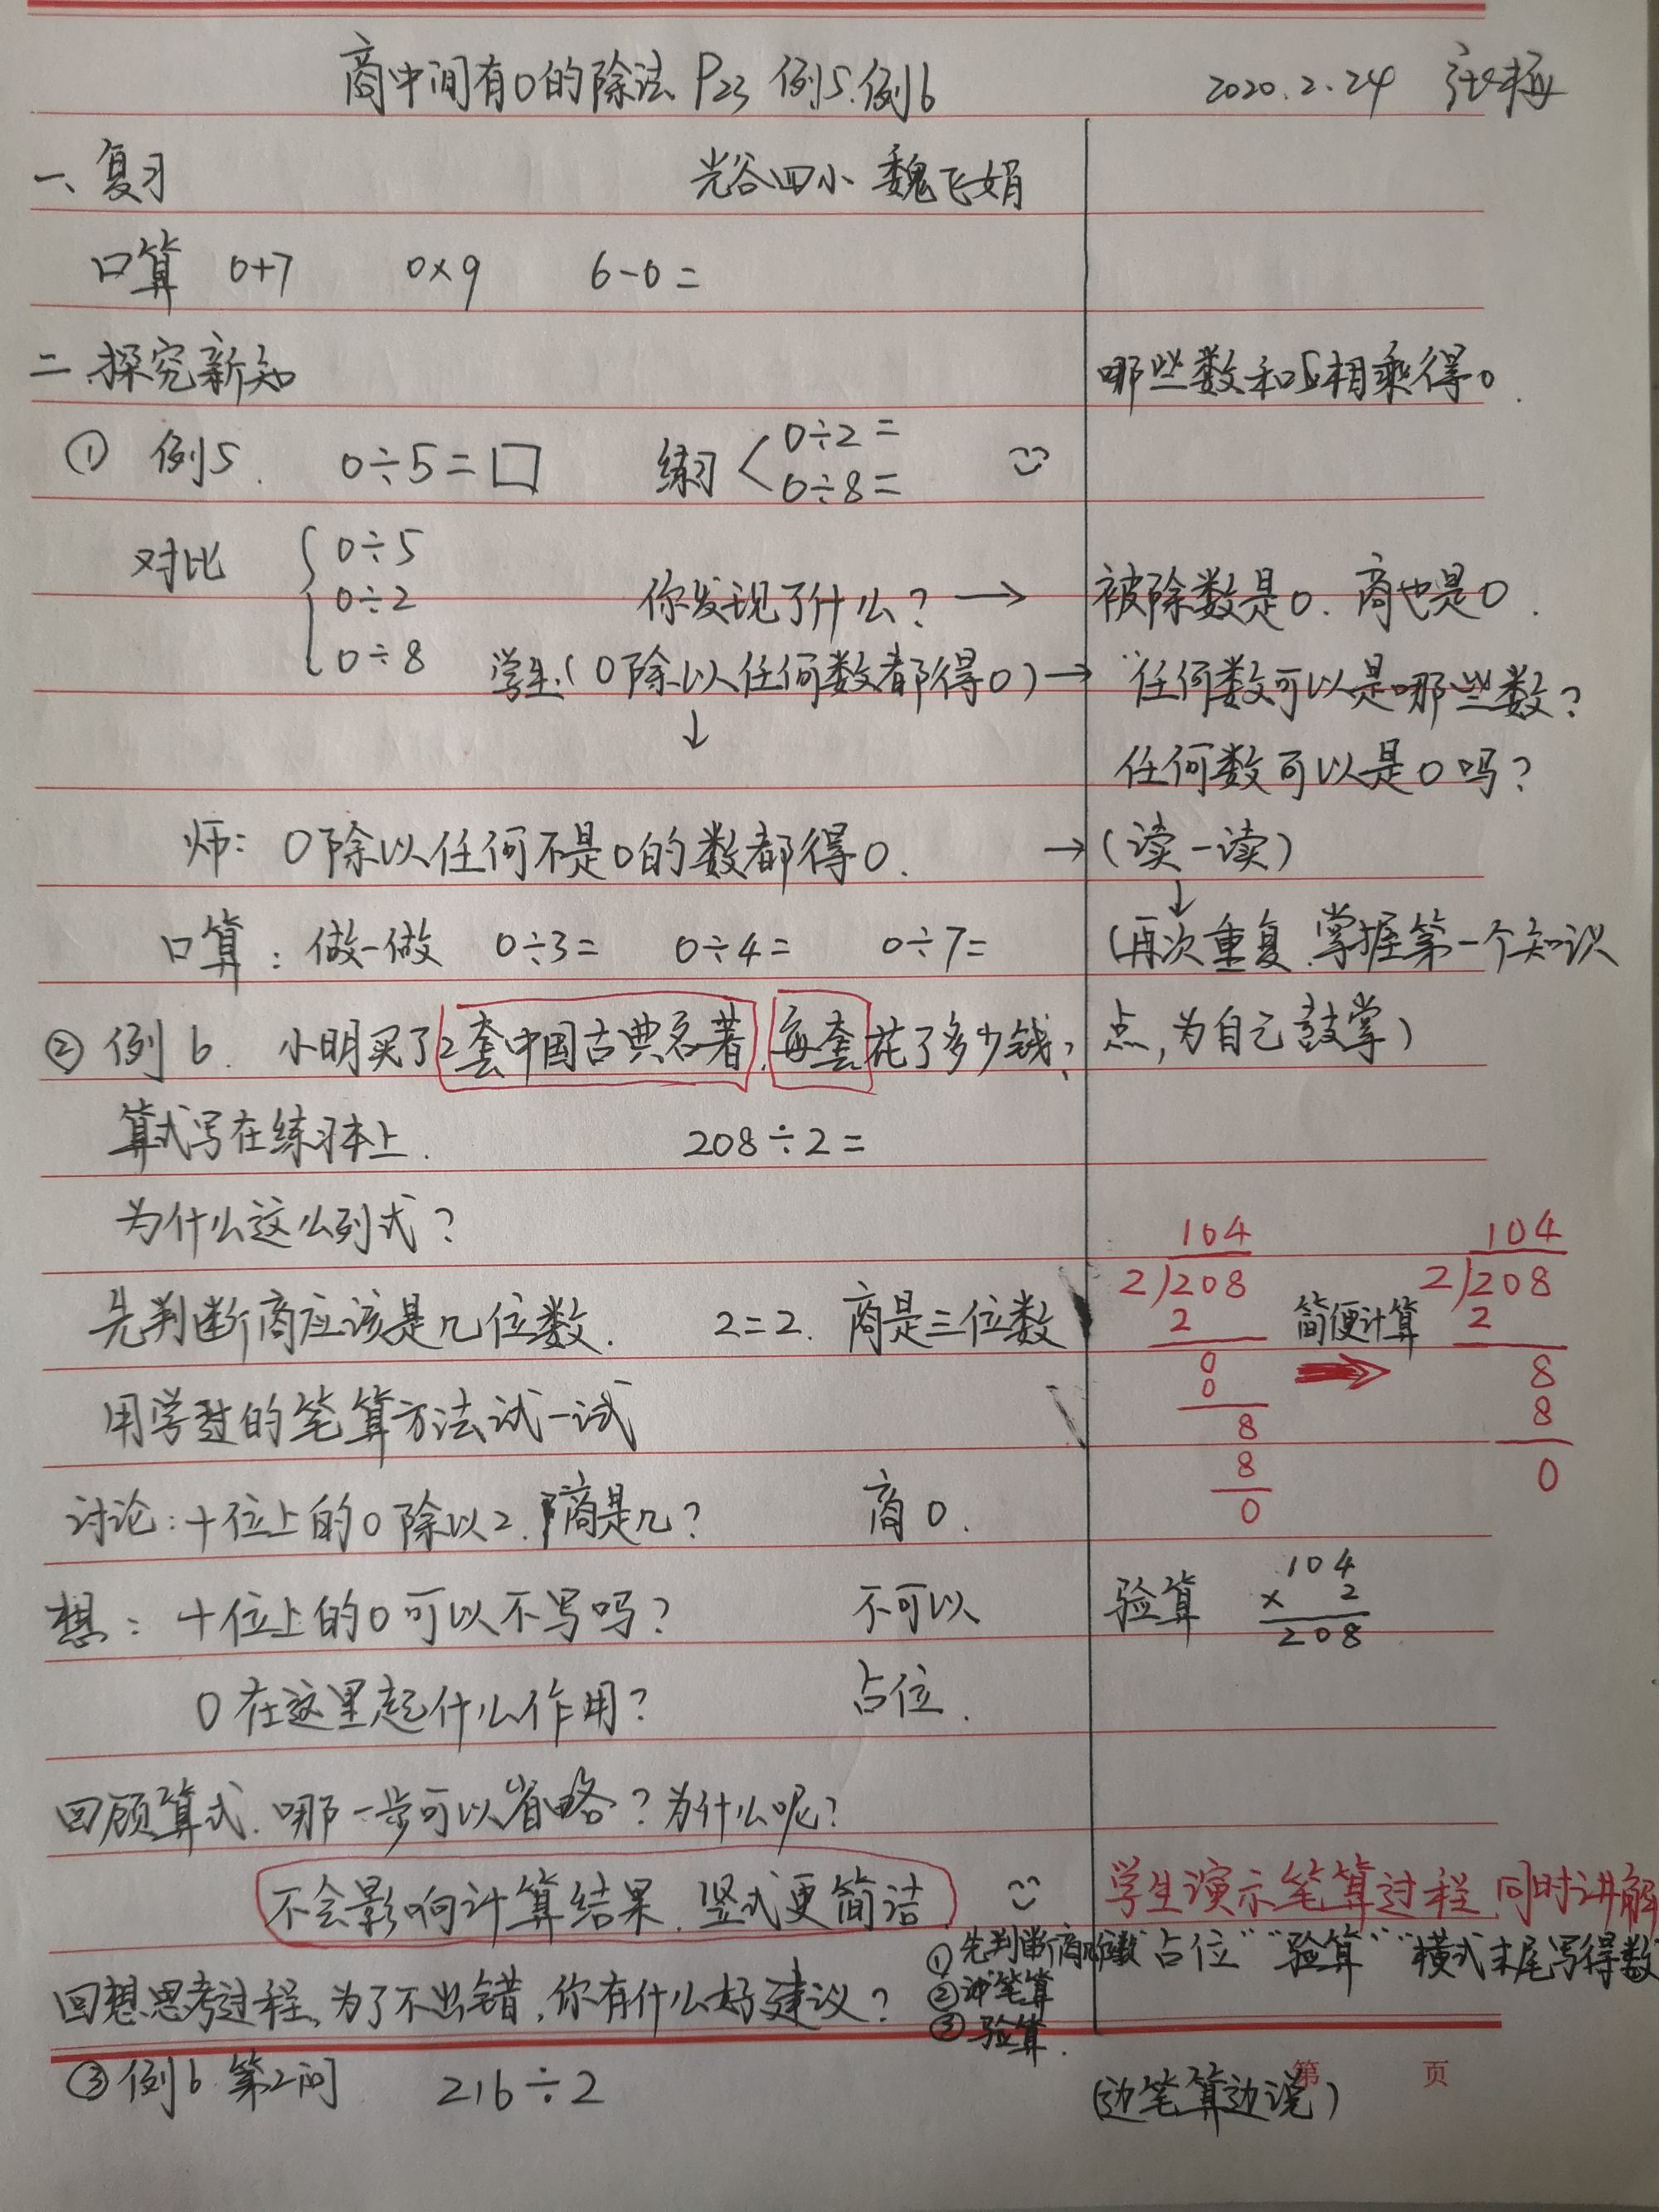 商中间有0的除法 P23 例5.例6 2020.2.24 张梅
一、复习 光谷四小 魏飞娟
口算 0+7 0×9 6-0=
二.探究新知 哪些数和5相乘得0.
① 例5. 0÷5=□ 练习 0÷2=
0÷8=
对比 0÷5
0÷2
0÷8
你发现了什么? → 被除数是0.商也是0.
学生:(0除以任何数都得0) → 任何数可以是哪些数?
↓
任何数可以是0吗?
师: 0除以任何不是0的数都得0. → (读一读)
↓
口算: 做一做 0÷3= 0÷4= 0÷7= (再次重复.掌握第一个知识
点,为自己鼓掌)
② 例6. 小明买了2套中国古典名著.每套花了多少钱?
算式写在练习本上. 208÷2=
为什么这么列式?
先判断商应该是几位数. 2=2. 商是三位数
用学过的笔算方法试一试
104
2)208
2
0
0
8
8
0
简便计算
104
2)208
2
8
8
0
讨论:十位上的0除以2.商是几? 商0.
想: 十位上的0可以不写吗? 不可以
验算 104
× 2
208
0在这里起什么作用? 占位.
回顾算式.哪一步可以省略?为什么呢?
不会影响计算结果.竖式更简洁
学生演示笔算过程.同时讲解
"占位" "验算" "横式末尾写得数
回想思考过程,为了不出错,你有什么好建议?
①先判断商
②笔算
③验算.
③例6.第2问 216÷2 (边笔算边说)
第 页